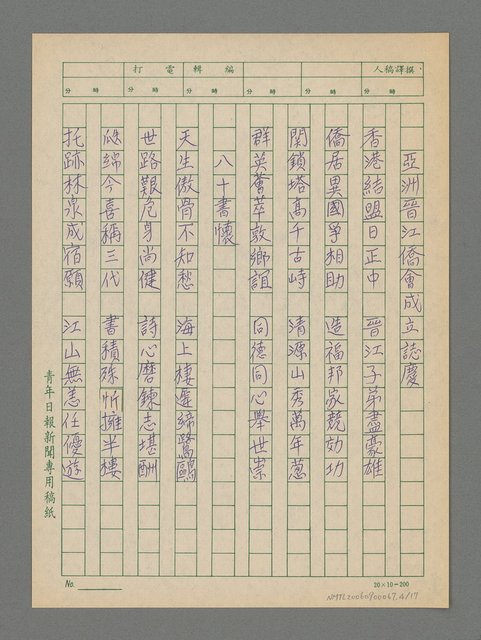 撰譯稿人
編輯
電打
時 分 時 分 時 分 時 分 時 分
亞洲晉江僑會成立誌慶
香港結盟日正中 晉江子弟盡豪雄
僑居異國爭相助 造福邦家競効功
関鎖塔高千古峙 清源山秀萬年蔥
群英薈萃敦鄉誼 同德同心舉世崇
八十書懷
天生傲骨不知愁 海上棲遲締鷺鷗
世路艱危身尚健 詩心磨鍊志堪酬
瓞綿今喜稱三代 書積殊忻擁半樓
托跡林泉成宿願 江山無恙任優遊
青年日報新聞專用稿紙
No.
20×10=200
NMTL20060900067.4/17